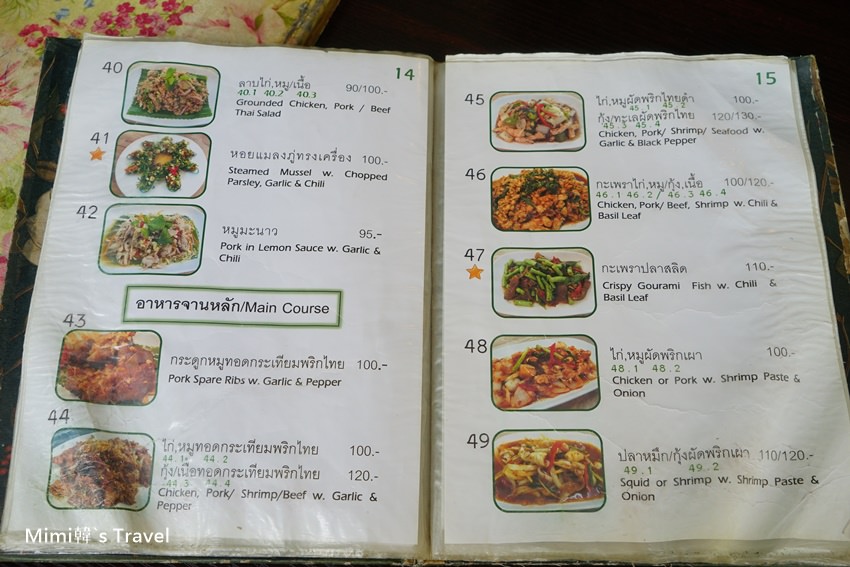 14
40
ลาบไก่,หมู/เนื้อ 90/100.-
40.1 40.2 40.3
Grounded Chicken, Pork / Beef
Thai Salad
41
หอยแมลงภู่ทรงเครื่อง 100.-
Steamed Mussel w. Chopped
Parsley, Garlic & Chili
42
หมูมะนาว 95.-
Pork in Lemon Sauce w. Garlic &
Chili
อาหารจานหลัก/Main Course
43
กระดูกหมูทอดกระเทียมพริกไทย 100.-
Pork Spare Ribs w. Garlic & Pepper
44
ไก่,หมูทอดกระเทียมพริกไทย 100.-
44.1 44.2
กุ้ง/เนื้อทอดกระเทียมพริกไทย 120.-
44.3 44.4
Chicken, Pork/ Shrimp/Beef w. Garlic &
Pepper
15
45
ไก่,หมูผัดพริกไทยดำ 100.-
45.1 45.2
กุ้ง/ทะเลผัดพริกไทย 120/130.-
45.3 45.4
Chicken, Pork/ Shrimp/ Seafood w.
Garlic & Black Pepper
46
กะเพราไก่,หมู/กุ้ง,เนื้อ 100/120.-
46.1 46.2 / 46.3 46.4
Chicken, Pork/ Beef, Shrimp w. Chili &
Basil Leaf
47
กะเพราปลาสลิด 110.-
Crispy Gourami Fish w. Chili &
Basil Leaf
48
ไก่,หมูผัดพริกเผา 100.-
48.1 48.2
Chicken or Pork w. Shrimp Paste &
Onion
49
ปลาหมึก/กุ้งผัดพริกเผา 110/120.-
49.1 49.2
Squid or Shrimp w. Shrimp Paste &
Onion
Mimi韓`s Travel